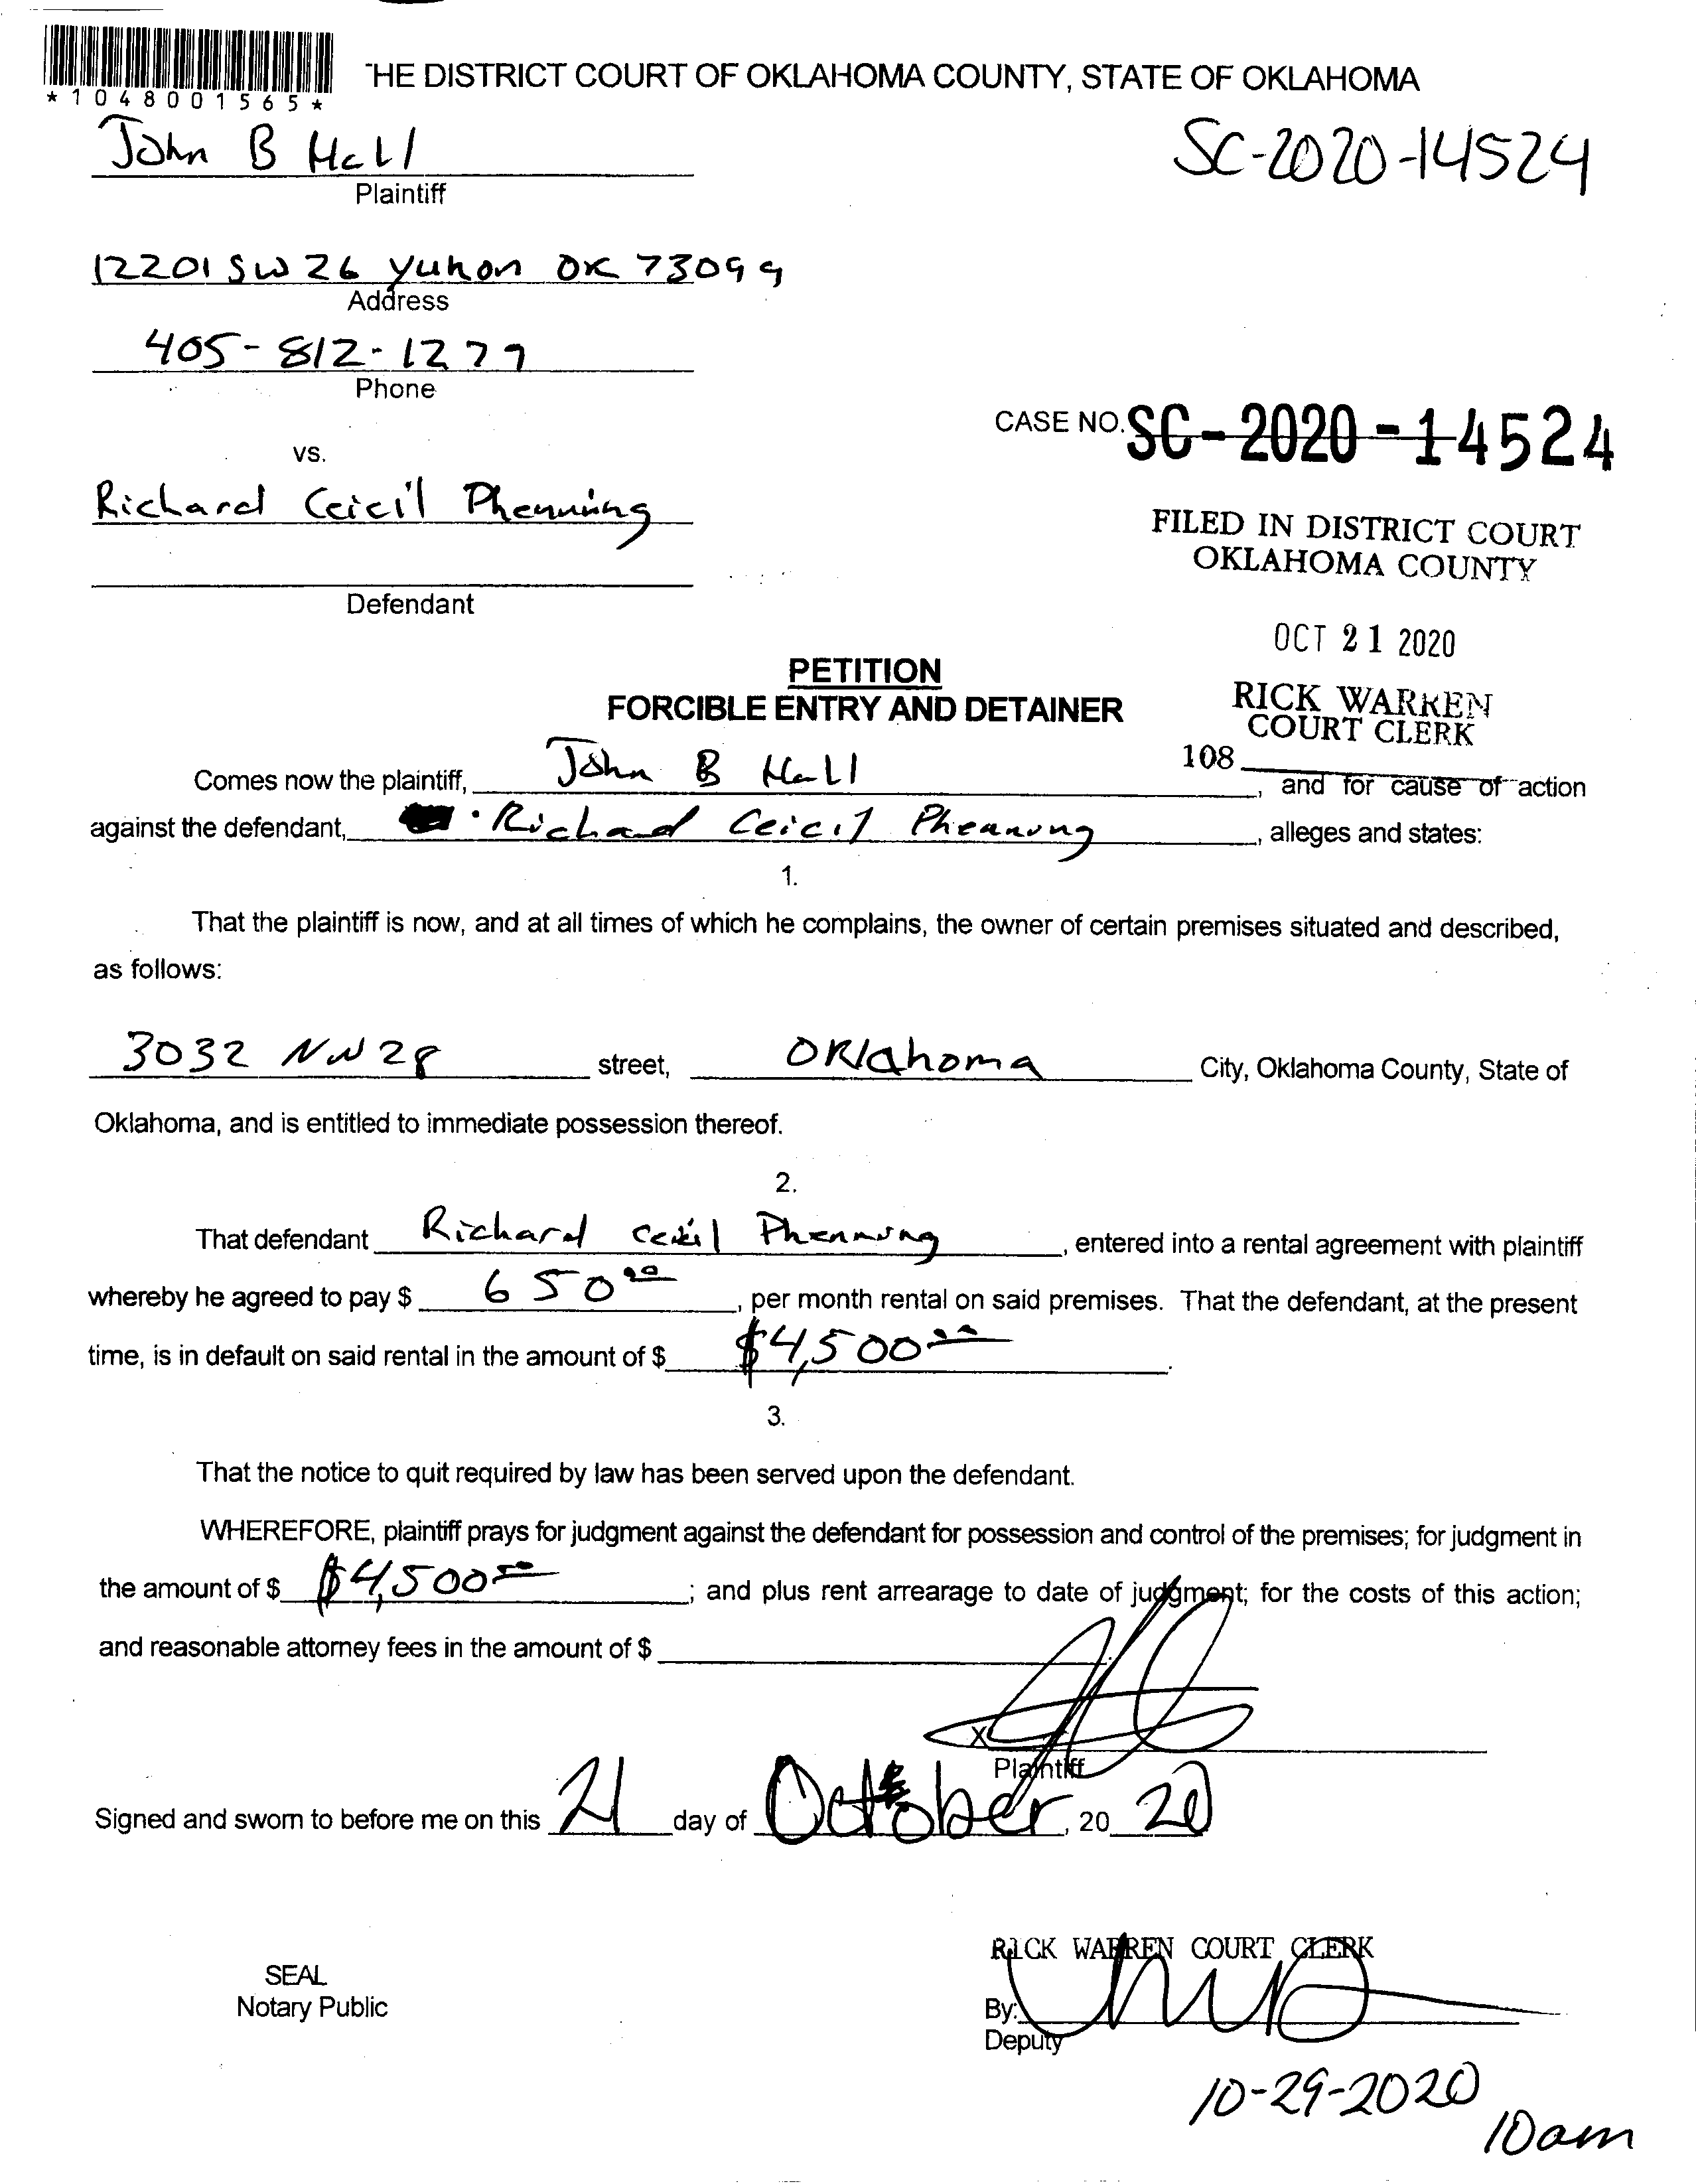 *1048001565*
THE DISTRICT COURT OF OKLAHOMA COUNTY, STATE OF OKLAHOMA
John B Hall
SC-2020-14524
Plaintiff
12201 SW 26 Yukon OK 73099
Address
405-812-1279
Phone
CASE NO. SC-2020-14524
vs.
Richard Ceicil Phenning
FILED IN DISTRICT COURT
OKLAHOMA COUNTY
Defendant
OCT 21 2020
PETITION
FORCIBLE ENTRY AND DETAINER
RICK WARREN
COURT CLERK
108
Comes now the plaintiff, John B Hall, and for cause of action
against the defendant, Richard Ceicil Phenning, alleges and states:
1.
That the plaintiff is now, and at all times of which he complains, the owner of certain premises situated and described,
as follows:
3032 NW 28 street, Oklahoma City, Oklahoma County, State of
Oklahoma, and is entitled to immediate possession thereof.
2.
That defendant Richard Ceicil Phenning, entered into a rental agreement with plaintiff
whereby he agreed to pay $ 650 00, per month rental on said premises. That the defendant, at the present
time, is in default on said rental in the amount of $ $4,500 00.
3.
That the notice to quit required by law has been served upon the defendant.
WHEREFORE, plaintiff prays for judgment against the defendant for possession and control of the premises; for judgment in
the amount of $ $4,500 00; and plus rent arrearage to date of judgment; for the costs of this action;
and reasonable attorney fees in the amount of $ .
X
Plaintiff
Signed and sworn to before me on this 21 day of October, 20 20
RICK WARREN COURT CLERK
SEAL
Notary Public
By:
Deputy
10-29-2020
10am